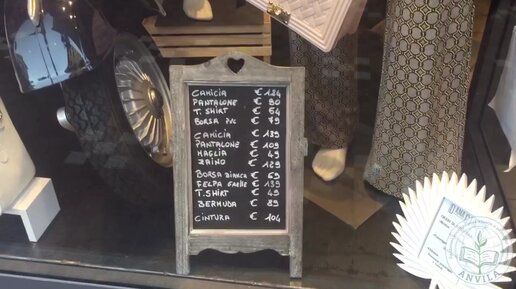 CAMICIA € 124
PANTALONE € 90
T. SHIRT € 54
BORSA PVC € 79
CAMICIA € 139
PANTALONE € 109
MAGLIA € 49
ZAINO € 129
BORSA BIANCA € 69
FELPA € 139
T. SHIRT € 49
BERMUDA € 89
CINTURA € 104
ANVILA